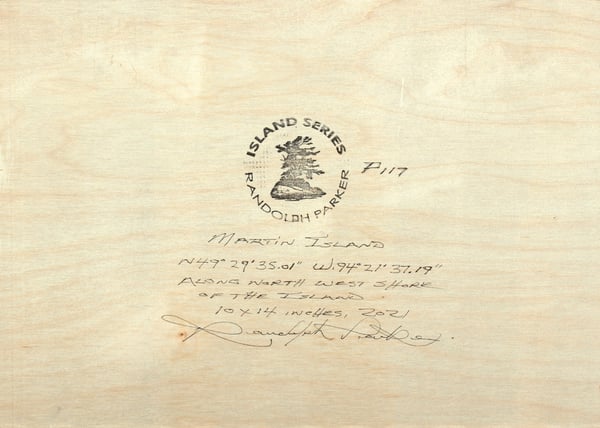 ISLAND SERIES
RANDOLPH PARKER
P117
MARTIN ISLAND
N49° 29' 35.01" W:94° 21' 37.19"
ALONG NORTH WEST SHORE
OF THE ISLAND
10 X 14 INCHES, 2021
Randolph Parker.